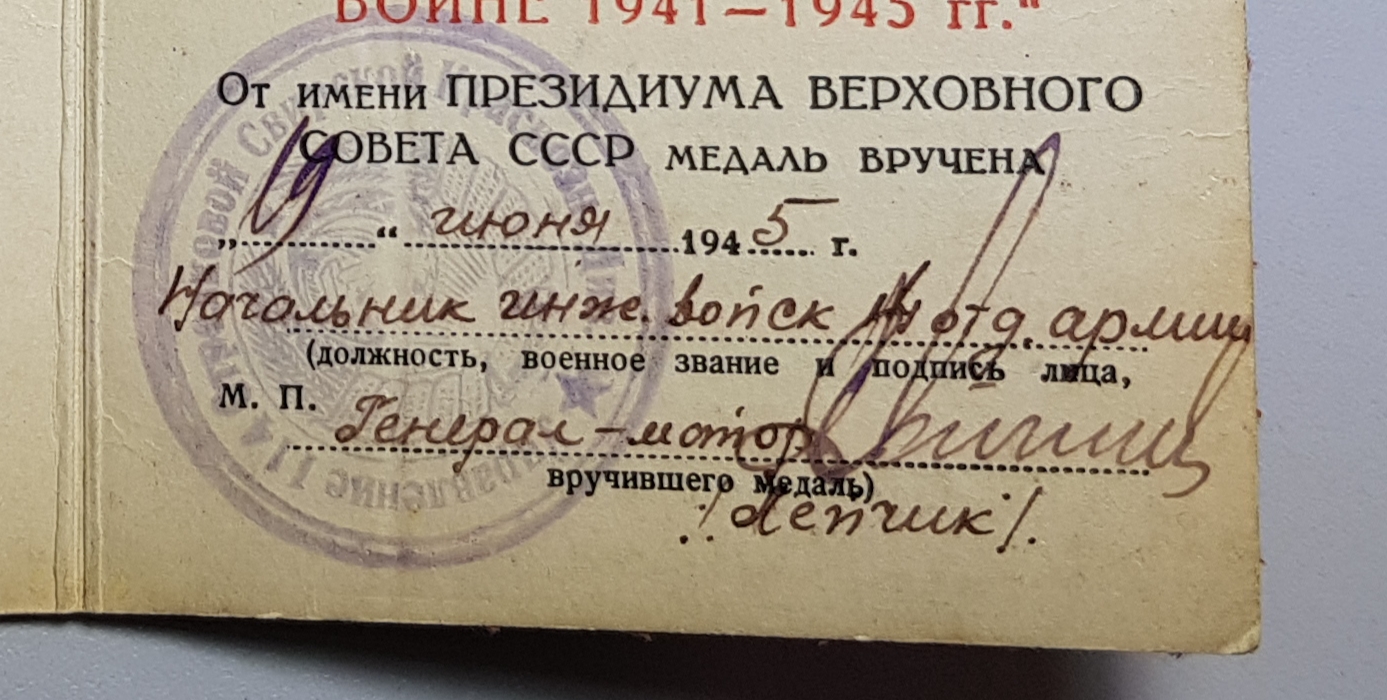 ВОЙНЕ 1941—1945 гг."
От имени ПРЕЗИДИУМА ВЕРХОВНОГО
СОВЕТА СССР МЕДАЛЬ ВРУЧЕНА
„19“ июня 1945 г.
Начальник инж. войск отд. армии
(должность, военное звание и подпись лица,
М. П.
Генерал-майор
вручившего медаль)
/Лепчик/.
Управление 114 стрелковой Свирской Краснозн